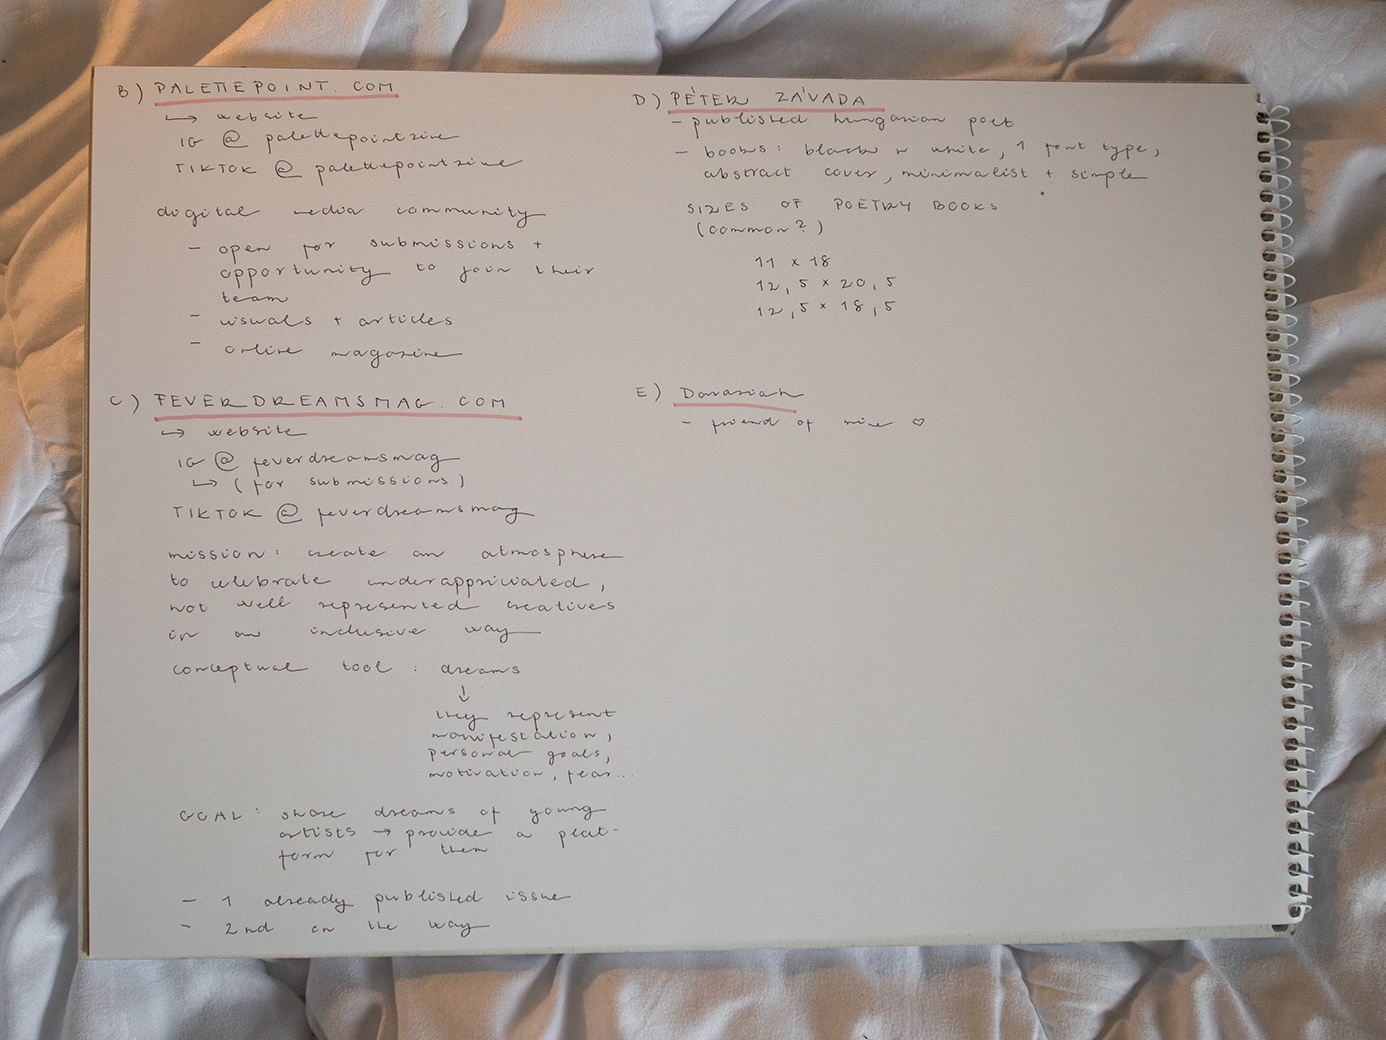 B) PALETTEPOINT.COM
↳ website
IG @ palettepointzine
TIKTOK @ palettepointzine
digital media community
- open for submissions +
opportunity to join their
team
- visuals + articles
- online magazine
C) FEVERDREAMSMAG.COM
↳ website
IG @ feverdreamsmag
↳ (for submissions)
TIKTOK @ feverdreamsmag
mission: create an atmosphere
to celebrate underappriciated,
not well represented creatives
in an inclusive way
conceptual tool : dreams
↓
they represent
manifestation,
personal goals,
motivation, fear...
GOAL: share dreams of young
artists → provide a plat-
form for them
- 1 already published issue
- 2nd on the way
D) PÉTER ZÁVADA
- published hungarian poet
- books: black n white, 1 font type,
abstract cover, minimalist + simple
SIZES OF POETRY BOOKS
(common?)
11 x 18
12,5 x 20,5
12,5 x 18,5
E)
- friend of mine ♡